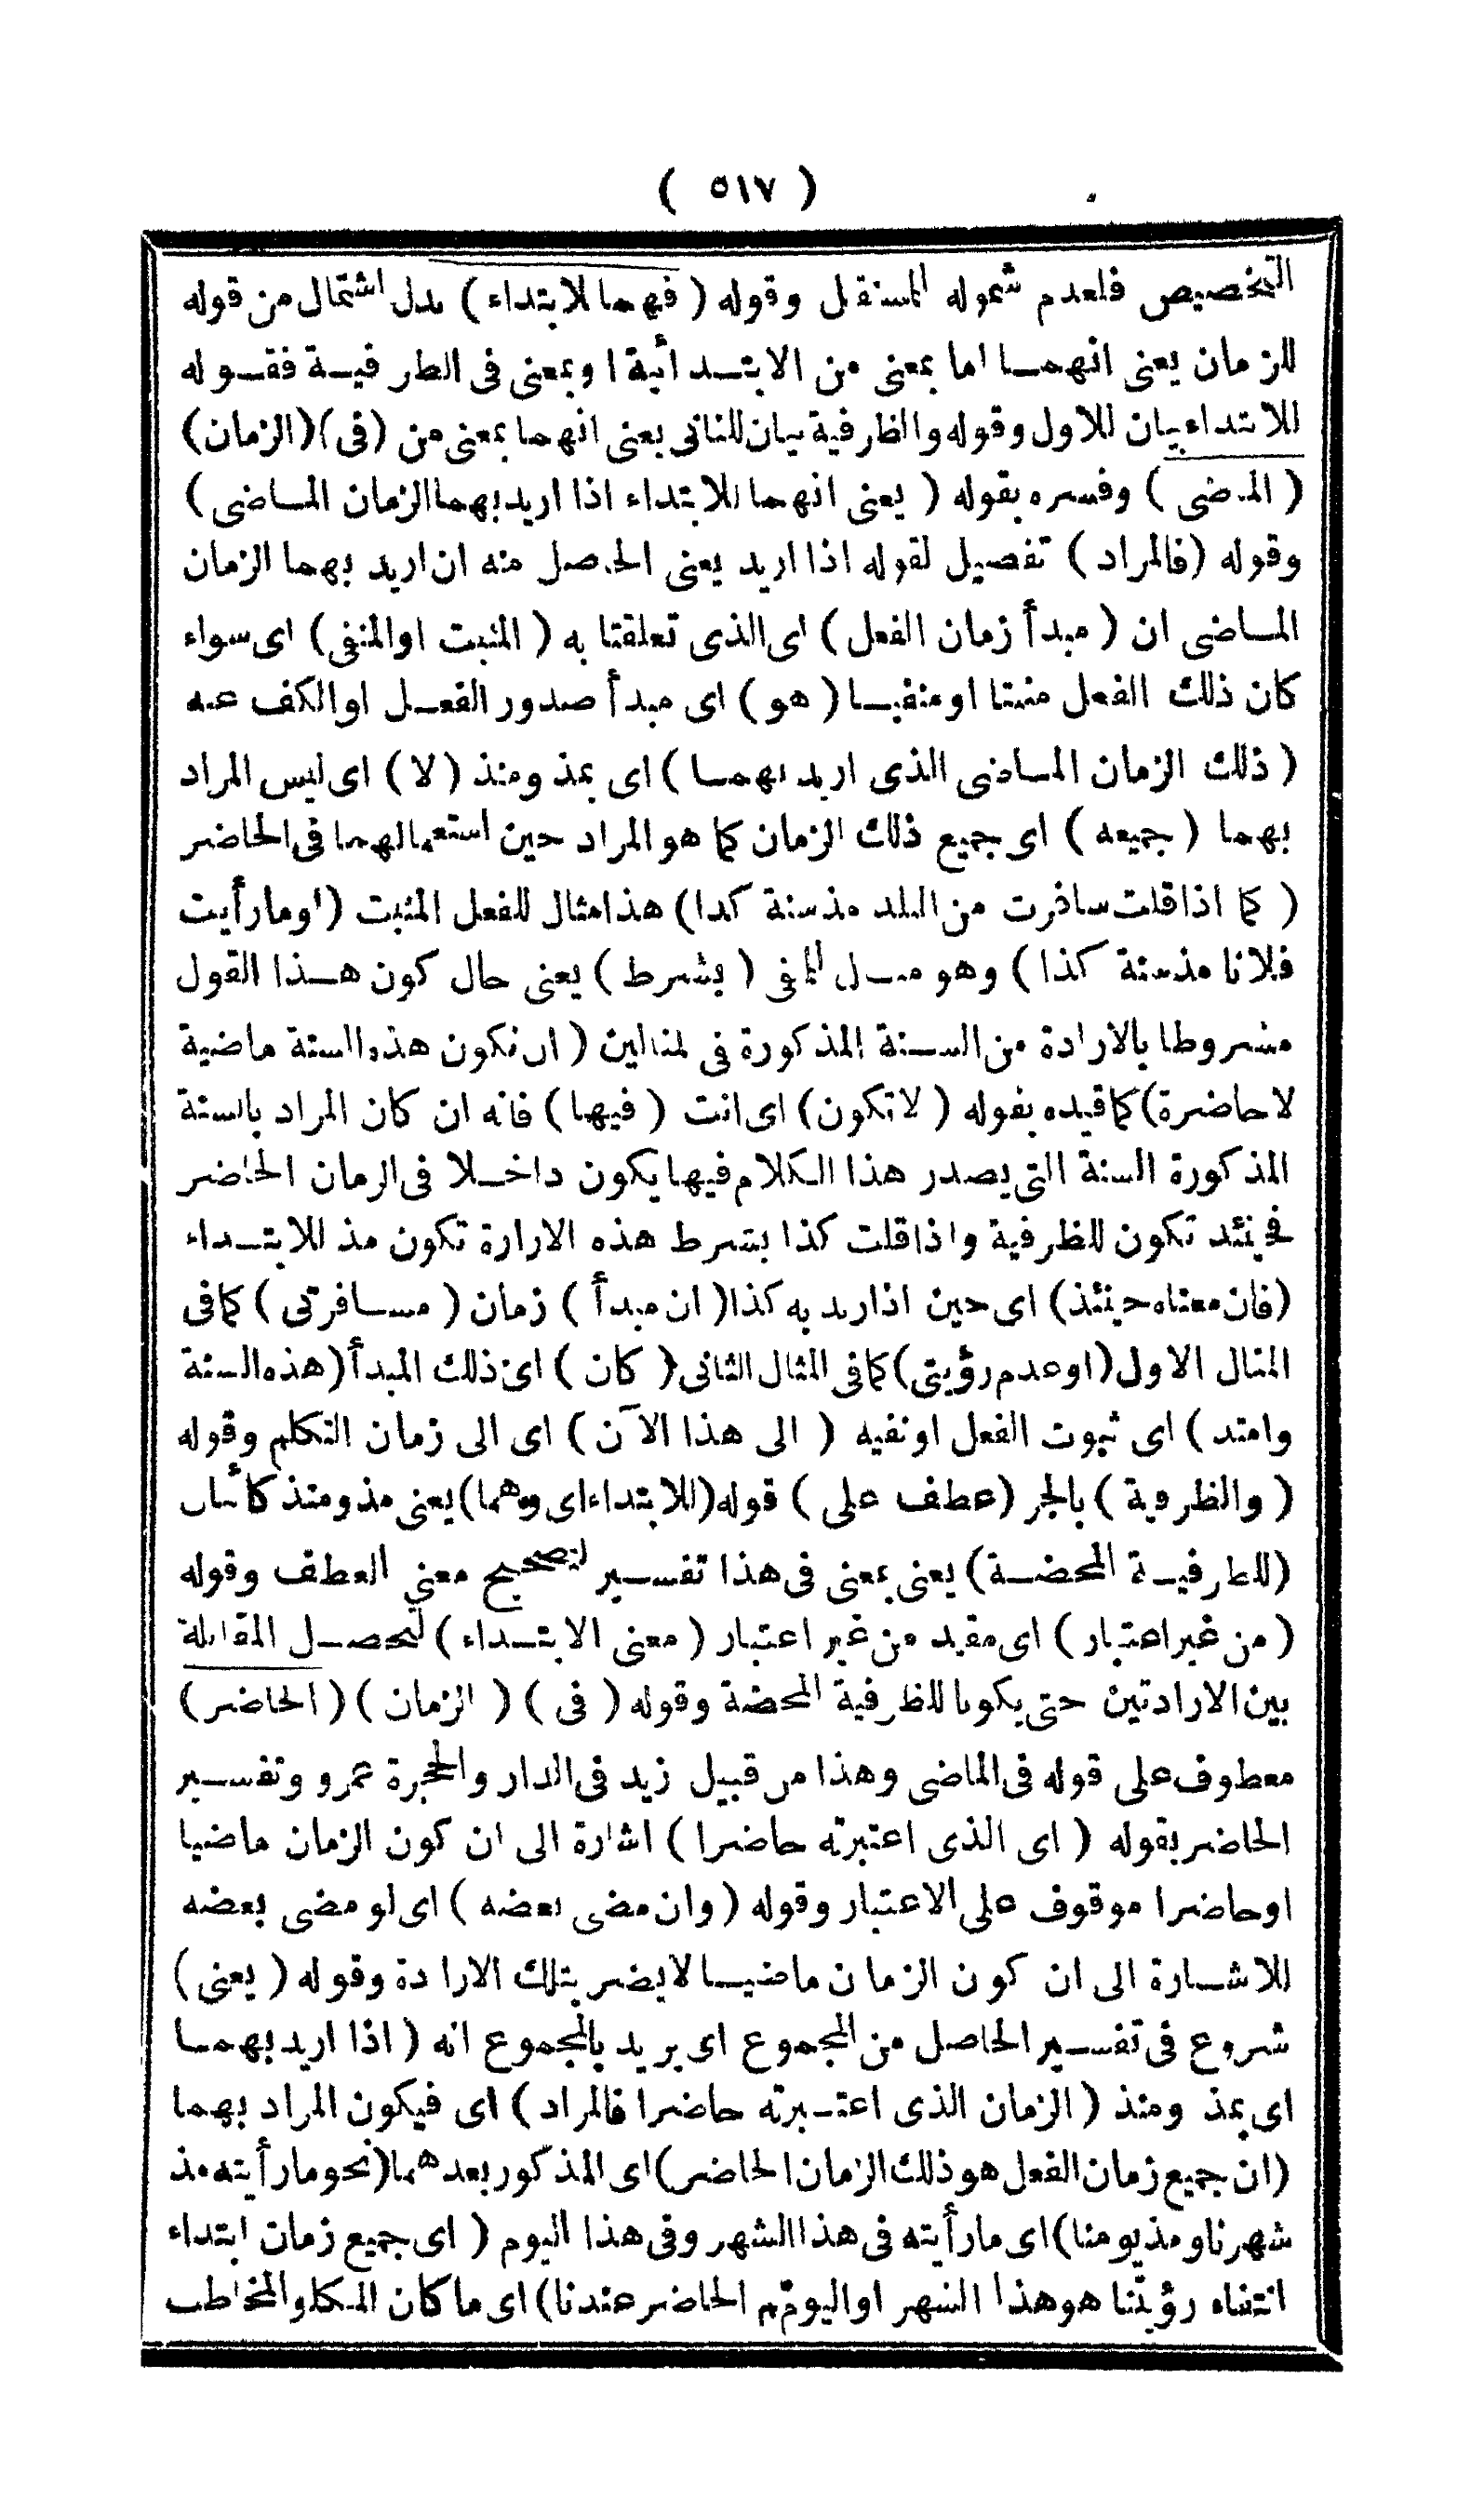 ( ٥١٧ )
التخصيص فلعدم شموله المستقبل وقوله ( فهما للابتداء ) بدل اشتمال من قوله
للزمان يعنى انهمـا اما بمعنى من الابتـدائية او بمعنى فى الظرفيـة فقـوله
للابتداء بيان للاول وقوله والظرفية بيان للثانى يعنى انهما بمعنى من (فى) (الزمان)
( الماضى ) وفسره بقوله ( يعنى انهما للابتداء اذا اريد بهما الزمان المـاضى )
وقوله (فالمراد ) تفصيل لقوله اذا اريد يعنى الحاصل منه ان اريد بهما الزمان
المـاضى ان ( مبدأ زمان الفعل ) اى الذى تعلقتا به ( المثبت او المنفى ) اى سواء
كان ذلك الفعل مثبتا او منفيـا ( هو ) اى مبدأ صدور الفعـل او الكف عنه
( ذلك الزمان المـاضى الذى اريد بهمـا ) اى بمذ ومنذ ( لا ) اى ليس المراد
بهما ( جميعه ) اى جميع ذلك الزمان كما هو المراد حين استعمالهما فى الحاضر
( كما اذا قلت سافرت من البلد مذ سنة كذا ) هذا مثال للفعل المثبت ( او ما رأيت
فلانا مذ سنة كذا ) وهو مثـال المنفى ( بشرط ) يعنى حال كون هـذا القول
مشروطا بالارادة من السـنة المذكورة فى المثالين ( ان تكون هذه السنة ماضية
لا حاضرة ) كما قيده بقوله ( لا تكون ) اى انت ( فيها ) فانه ان كان المراد بالسنة
المذكورة السنة التى يصدر هذا الـكلام فيها يكون داخـلا فى الزمان الحاضر
فحينئذ تكون للظرفية واذا قلت كذا بشرط هذه الارارة تكون مذ للابتـداء
(فان معناه حينئذ) اى حين اذ اريد به كذا ( ان مبدأ ) زمان ( مسـافرتى ) كما فى
المثال الاول (او عدم رؤيتى) كما فى المثال الثانى ( كان ) اى ذلك المبدأ (هذه السنة
وامتد ) اى ثبوت الفعل او نفيه ( الى هذا الآن ) اى الى زمان التكلم وقوله
( والظرفية ) بالجر ( عطف على ) قوله (للابتداء اى وهما) يعنى مذ ومنذ كائنان
(للظرفيـة المحضـة) يعنى بمعنى فى هذا تفسـير لتصحيح معنى العطف وقوله
( من غير اعتبار ) اى مقيد من غير اعتبار ( معنى الابتـداء ) ليحصـل المقابلة
بين الارادتين حتى يكونا للظرفية المحضة وقوله ( فى ) ( الزمان ) ( الحاضر )
معطوف على قوله فى الماضى وهذا من قبيل زيد فى الدار والحجرة عمرو وتفسـير
الحاضر بقوله ( اى الذى اعتبرته حاضرا ) اشارة الى ان كون الزمان ماضيا
او حاضرا موقوف على الاعتبار وقوله ( وان مضى بعضه ) اى لو مضى بعضه
للاشـارة الى ان كون الزمان ماضيـا لا يضر بتلك الارادة وقوله ( يعنى )
شروع فى تفسـير الحاصل من المجموع اى يريد بالمجموع انه ( اذا اريد بهمـا
اى بمذ ومنذ ( الزمان الذى اعتـبرته حاضرا فالمراد ) اى فيكون المراد بهما
(ان جميع زمان الفعل هو ذلك الزمان الحاضر) اى المذكور بعدهما (نحو ما رأيته مذ
شهرنا ومذ يومنا) اى ما رأيته فى هذا الشهر وفى هذا اليوم ( اى جميع زمان ابتداء
انتفاء رؤيتنا هو هذا الشهر او اليوم الحاضر عندنا) اى ما كان والمخاطب